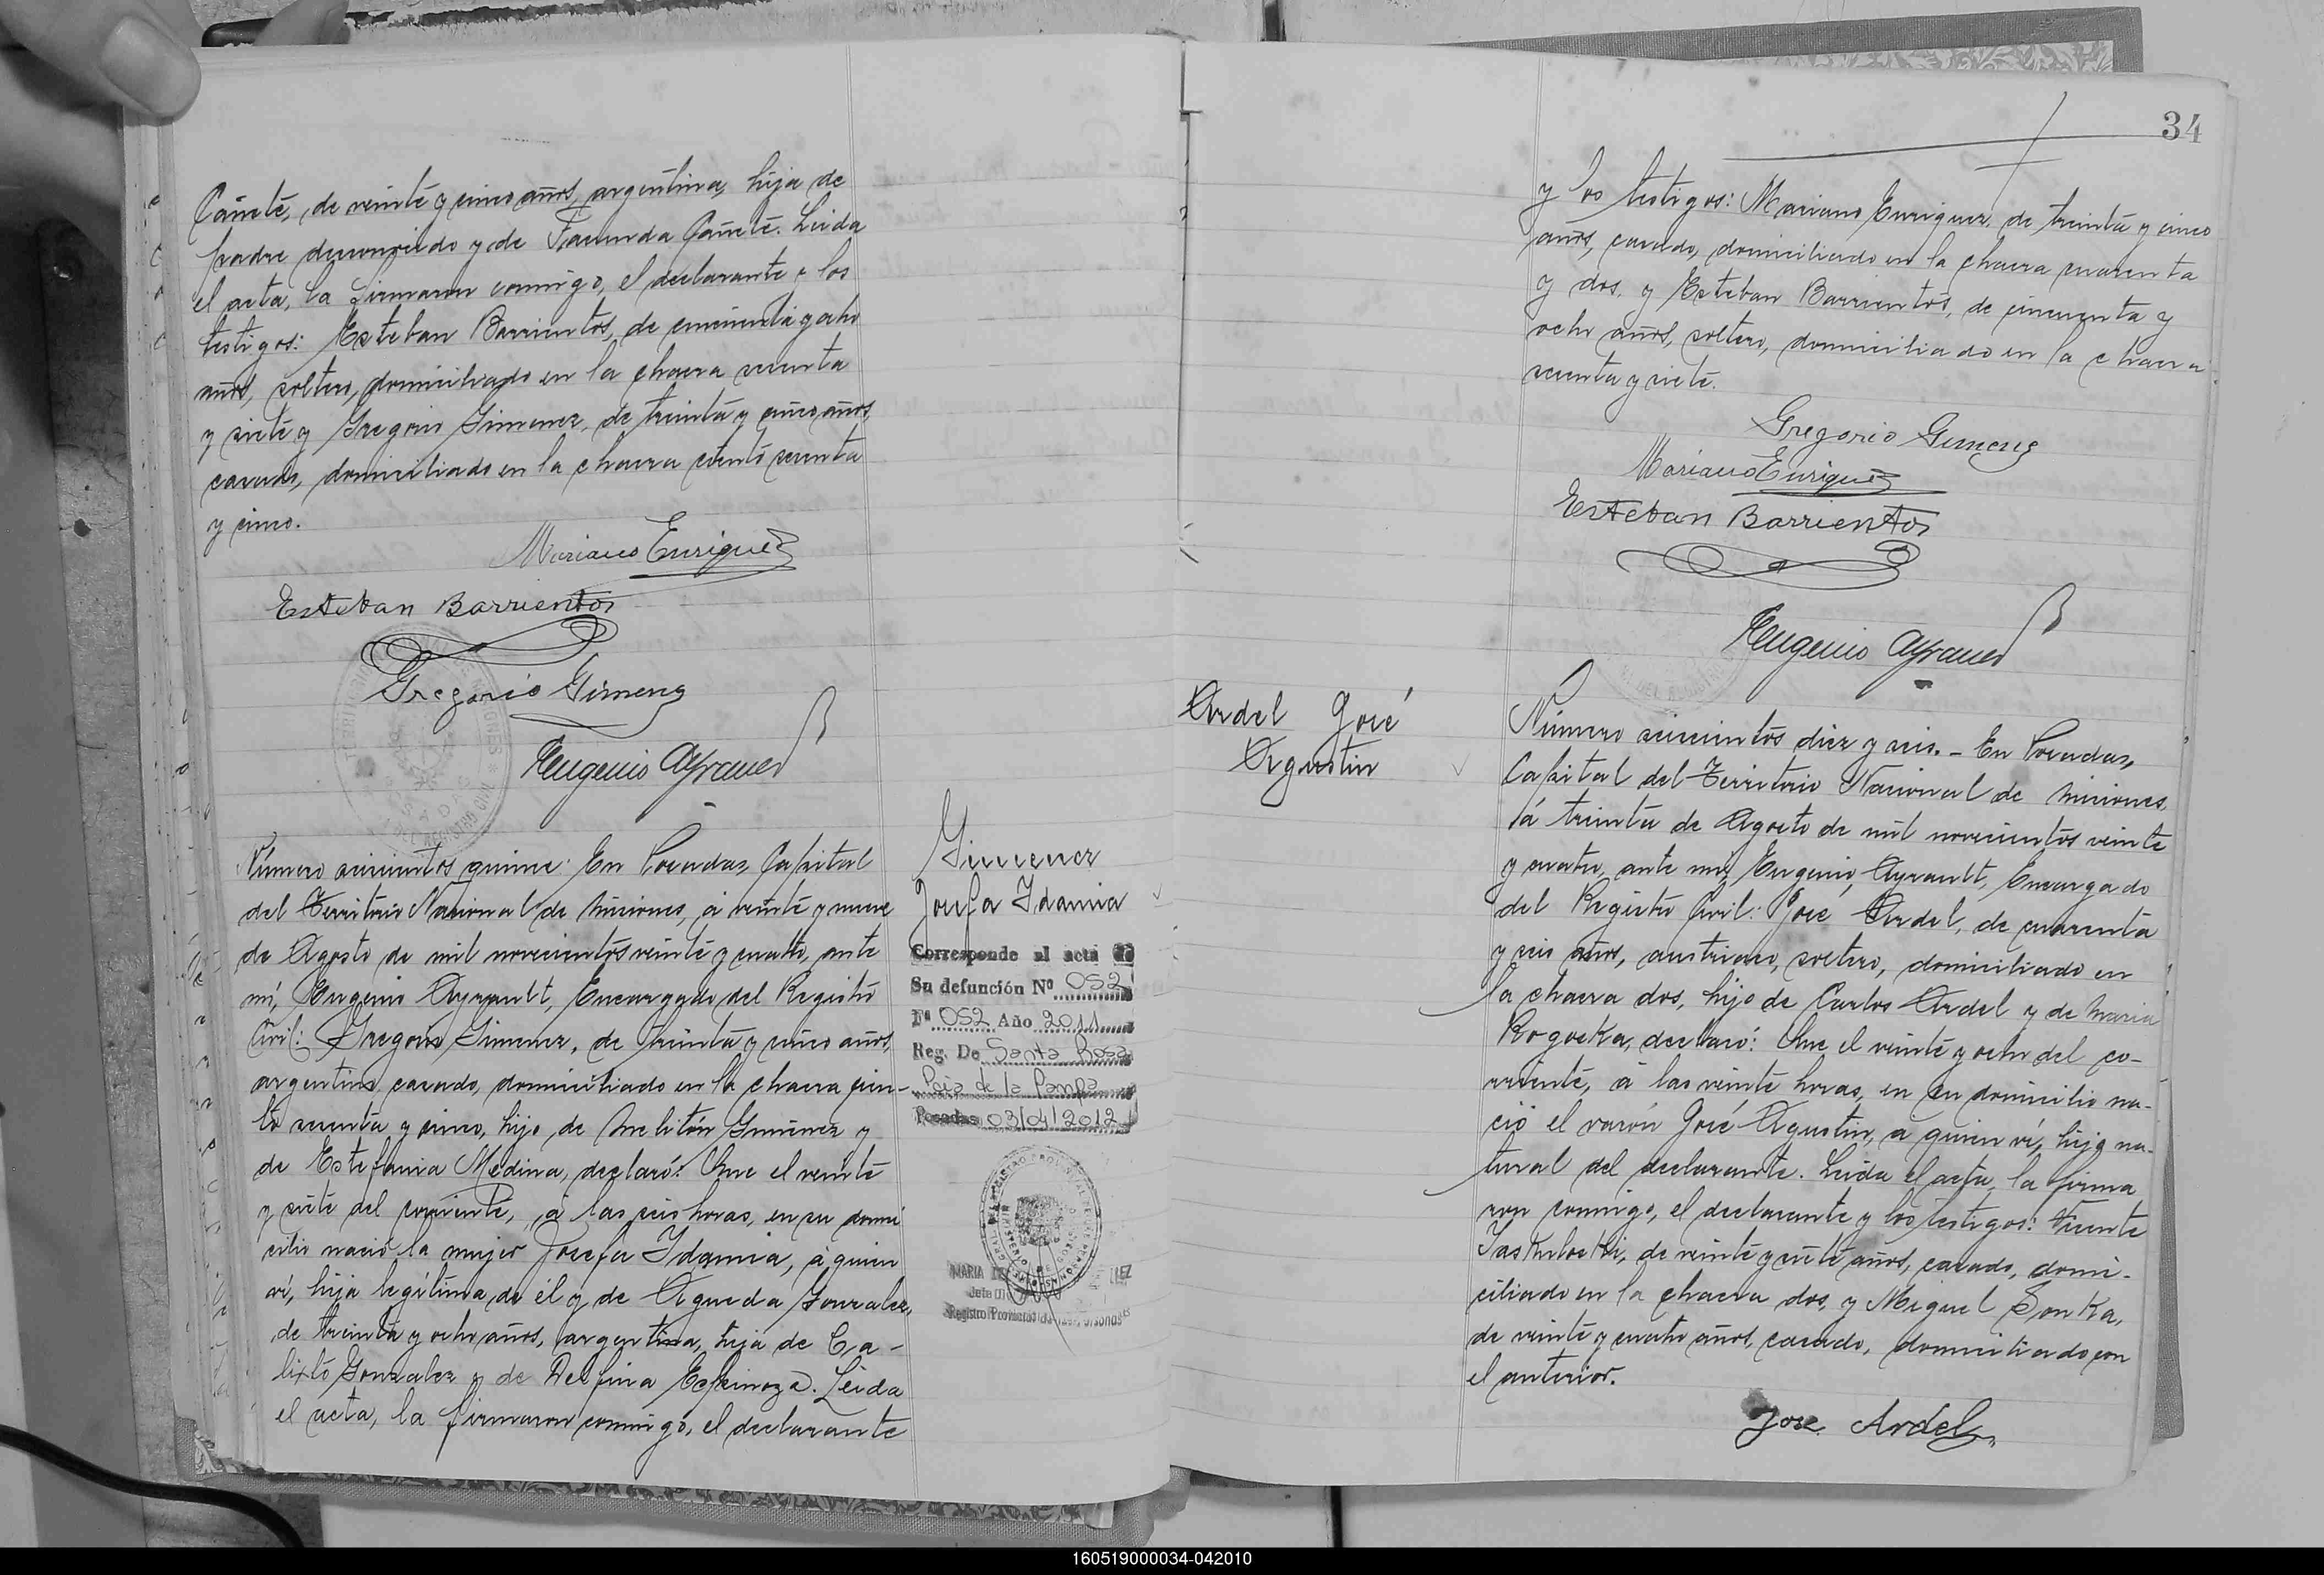 Cañete, de veinte y cinco años, argentina, hija de
padre desconocido y de Facunda Cañete. Leida
el acta, la firmaron conmigo, el declarante y los
testigos: Esteban Barrientos, de cincuenta y ocho
años, soltero, domiciliado en la chacra sesenta
y siete y Gregorio Gimenez, de treinta y cinco años,
casado, domiciliado en la chacra ciento sesenta
y cinco.
Mariano Enriquez
Esteban Barrientos
Gregorio Gimenez
Eugenio Ayrault
Número seiscientos quince: En Posadas, Capital
del Territorio Nacional de Misiones, á veinte y nueve
de Agosto de mil novecientos veinte y cuatro, ante
mí, Eugenio Ayrault, Encargado del Registro
Civil: Gregorio Gimenez, de treinta y cinco años,
argentino, casado, domiciliado en la chacra cien-
to sesenta y cinco, hijo de Melitón Gimenez y
de Estefania Medina, declaró: Que el veinte
y siete del corriente, á las seis horas, en su domi
cilio nació la mujer Josefa Idamia, á quien
ví, hija legítima de él y de Agueda Gonzalez,
de treinta y ocho años, argentina, hija de Ca-
lixto Gonzalez y de Delfina Espinoza. Leida
el acta, la firmaron conmigo, el declarante
Gimenez
Josefa Idamia
Corresponde al acta de
Su defunción Nº 052
Fº 052 Año 2011
Reg. De Santa Rosa
Pcia de la Pampa
Posadas 03/04/2012
34
y los testigos: Mariano Enriquez, de treinta y cinco
años, casado, domiciliado en la chacra cuarenta
y dos, y Esteban Barrientos, de cincuenta y
ocho años, soltero, domiciliado en la chacra
sesenta y siete.
Gregorio Gimenez
Mariano Enriquez
Esteban Barrientos
Eugenio Ayrault
Ardel José
Agustin
Número seiscientos diez y seis.- En Posadas,
Capital del Territorio Nacional de Misiones,
á treinta de Agosto de mil novecientos veinte
y cuatro, ante mí, Eugenio Ayrault, Encargado
del Registro Civil: José Ardel, de cuarenta
y seis años, austriaco, soltero, domiciliado en
la chacra dos, hijo de Carlos Ardel y de Maria
Rogocka, declaró: Que el veinte y ocho del co-
rriente, á las veinte horas, en su domicilio na-
ció el varón José Agustin, a quien ví, hijo na-
tural del declarante. Leida el acta, la firma
ron conmigo, el declarante y los testigos: Vicente
de veinte y siete años, casado, domi-
ciliado en la chacra dos, y Miguel Sonka,
de veinte y cuatro años, casado, domiciliado con
el anterior.
Jose Ardel
160519000034-042010